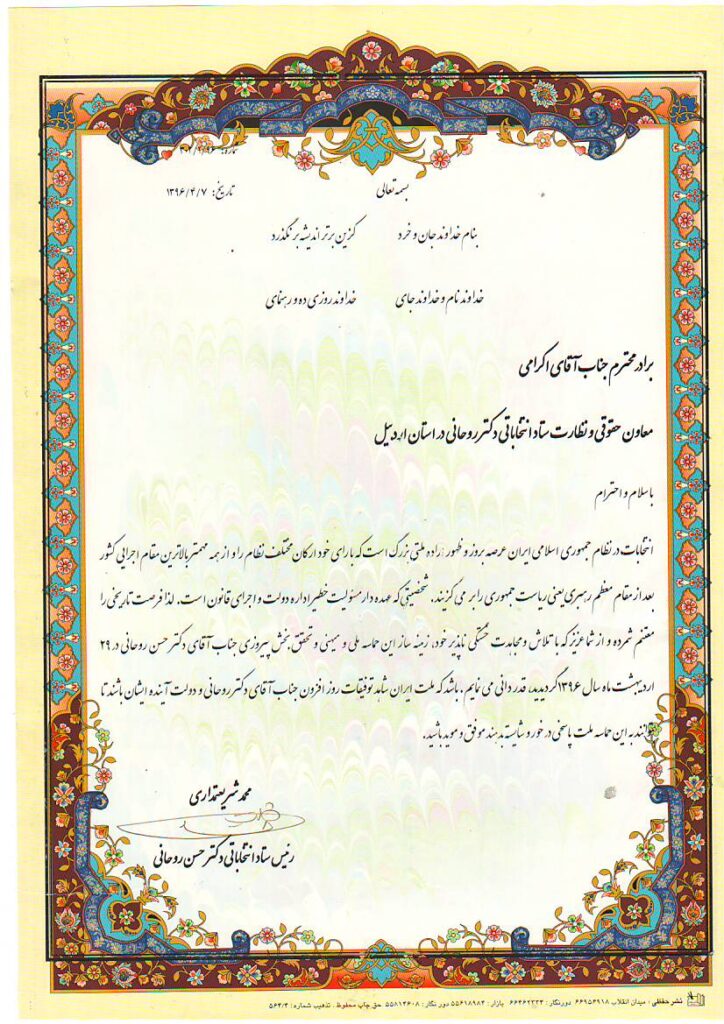 بسمه تعالی
تاریخ: ۱۳۹۶/۴/۷
بنام خداوند جان و خرد کزین برتر اندیشه برنگذرد
خداوند نام و خداوند جای خداوند روزی ده و رهنمای
برادر محترم جناب آقای اکرامی
معاون حقوقی و نظارت ستاد انتخاباتی دکتر روحانی در استان اردبیل
با سلام و احترام
انتخابات در نظام جمهوری اسلامی ایران عرصه بروز و ظهور اراده ملتی بزرگ است که با رای خود ارکان مختلف نظام را و از همه مهمتر بالاترین مقام اجرایی کشور
بعد از مقام معظم رهبری یعنی ریاست جمهوری را بر می گزیند، شخصیتی که عهده دار مسئولیت خطیر اداره دولت و اجرای قانون است. لذا فرصت تاریخی را
مغتنم شمرده و از شما عزیز که با تلاش و مجاهدت خستگی ناپذیر خود، زمینه ساز این حماسه ملی و میهنی و تحقق بخش پیروزی جناب آقای دکتر حسن روحانی در ۲۹
اردیبهشت ماه سال ۱۳۹۶ گردیدید، قدردانی می نمایم. باشد که ملت ایران شاهد توفیقات روز افزون جناب آقای دکتر روحانی و دولت آینده ایشان باشند تا
بتوانند به این حماسه ملت پاسخی در خور و شایسته بدهند موفق و موید باشید.
محمد شریعتمداری
رئیس ستاد انتخاباتی دکتر حسن روحانی
نشر حفظی : میدان انقلاب ۶۶۹۵۳۹۱۸ دورنگار: ۶۶۴۶۲۳۳۴ بازار: ۵۵۶۱۸۹۸۴ دور نگار: ۵۵۸۱۴۶۰۸ حق چاپ محفوظ . تذهیب شماره: ۵۶۴/۳